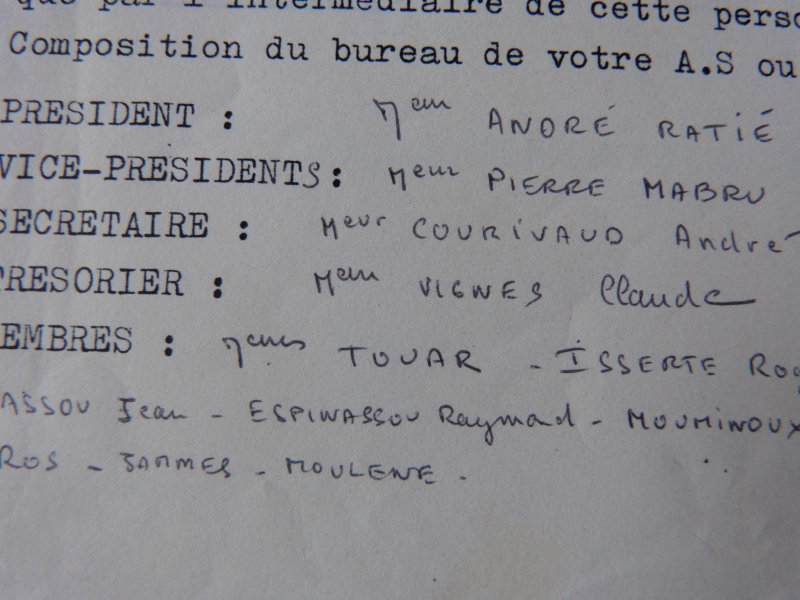 que par l'intermédiaire de cette perso
Composition du bureau de votre A.S ou
PRESIDENT : Meur ANDRÉ RATIÉ
VICE-PRESIDENTS: Meur PIERRE MABRU
SECRETAIRE : Meur COURIVAUD André
TRESORIER : Meur VIGNES Claude
EMBRES : Meurs TOUAR - ISSERTE Rog
ASSOU Jean - ESPINASSOU Raymond - MOUMINOUX
ROS - JAMMES - MOULENE -